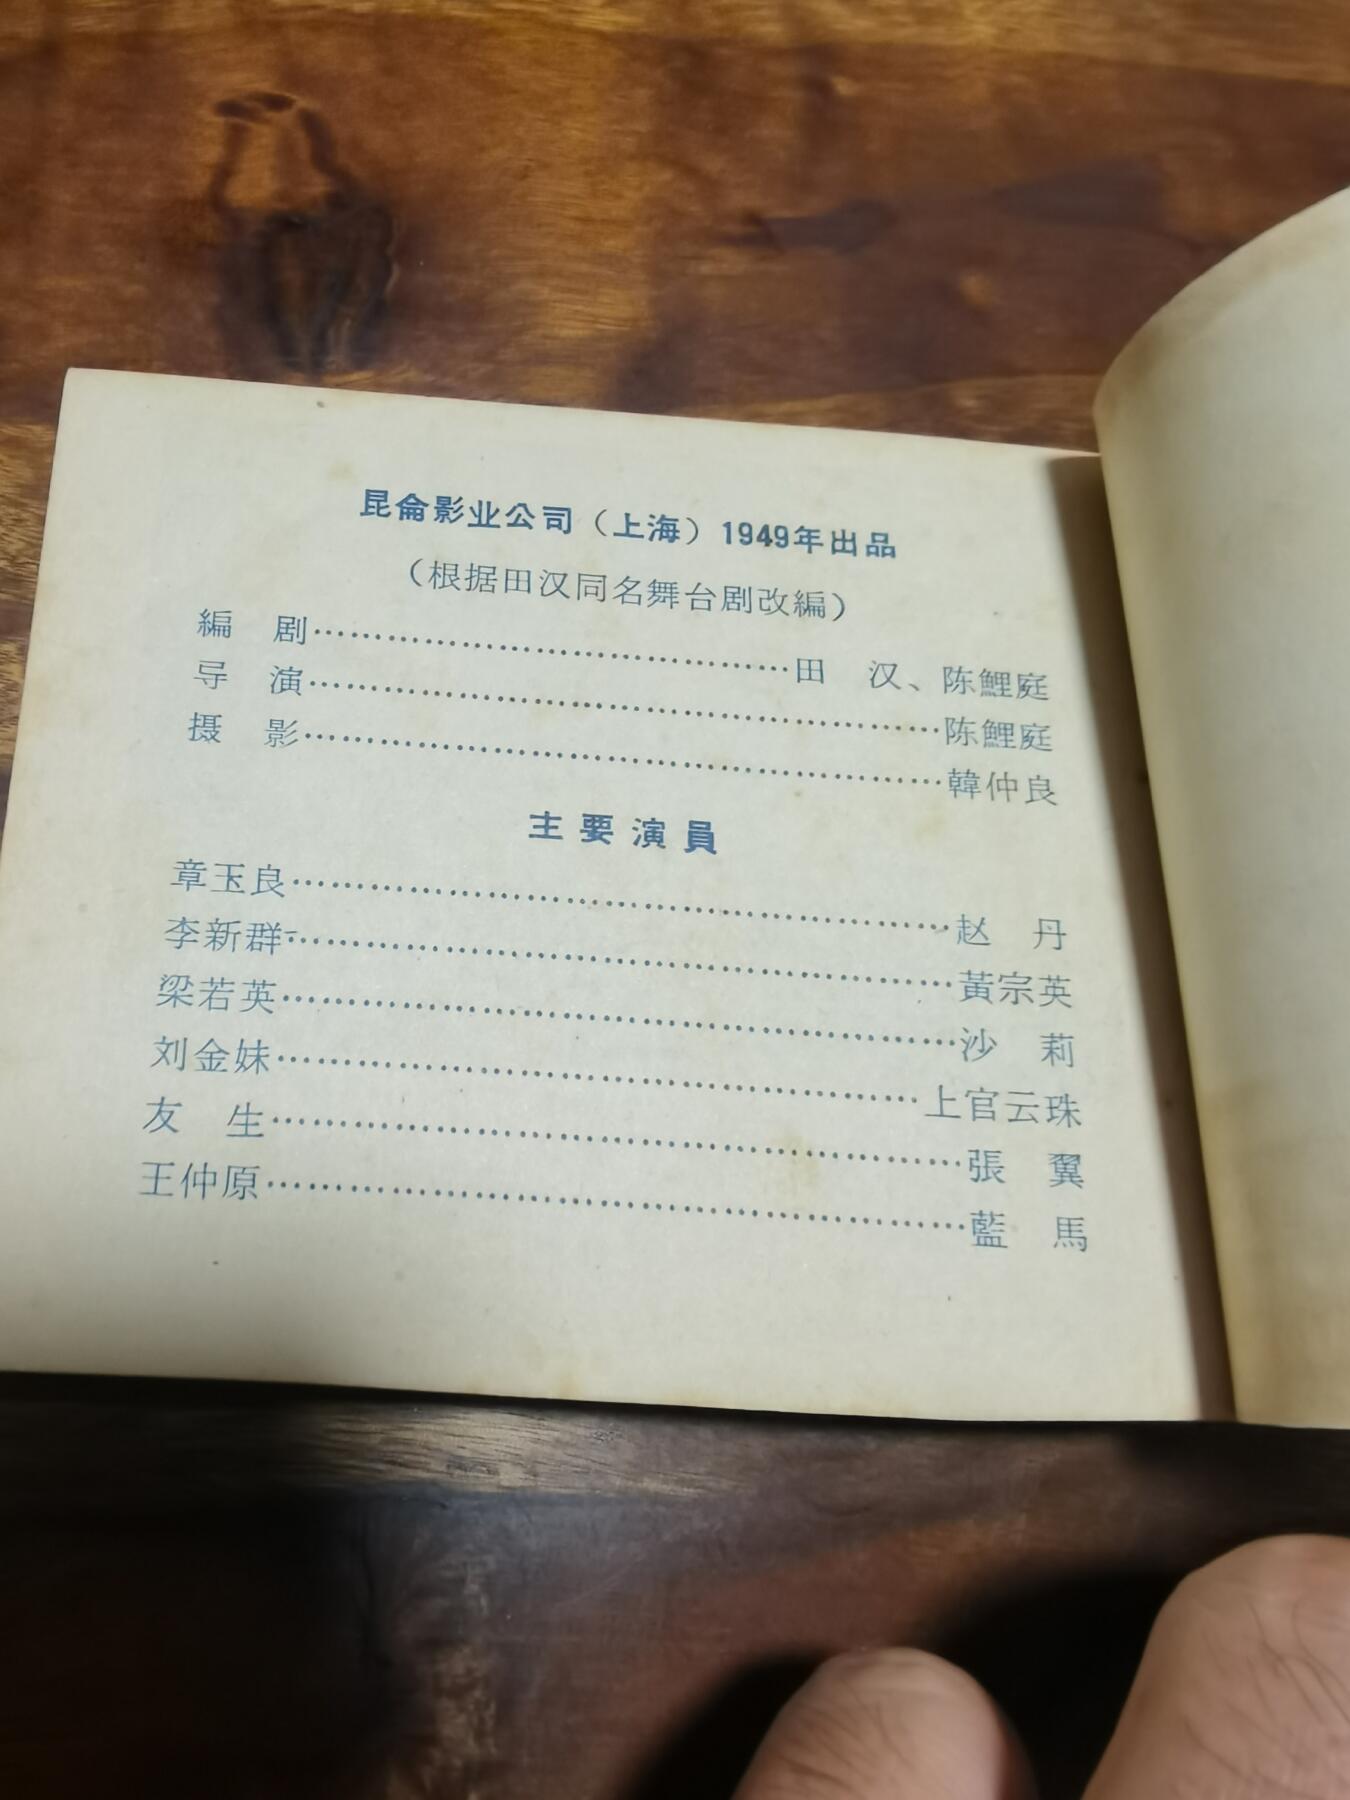 昆侖影业公司（上海）1949年出品
（根据田汉同名舞台剧改編）
編　剧……………………………………田　汉、陈鯉庭
导　演……………………………………陈鯉庭
摄　影……………………………………韓仲良
主要演員
章玉良……………………………………赵　丹
李新群……………………………………黃宗英
梁若英……………………………………沙　莉
刘金妹……………………………………上官云珠
友　生……………………………………張　翼
王仲原……………………………………藍　馬